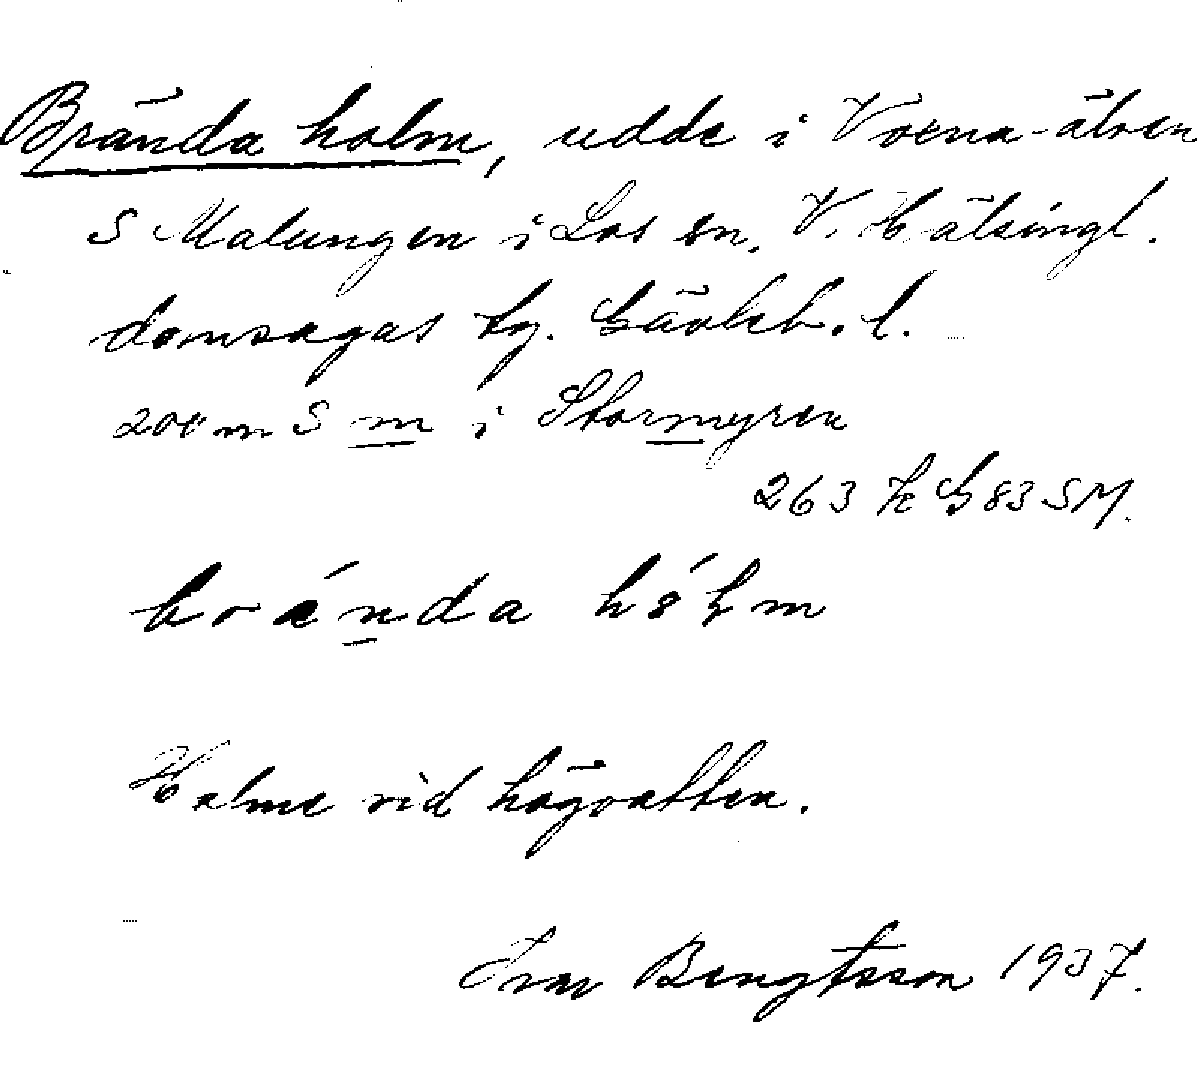 Brända holm, udde i Voxna-älven
S Malungen i Los sn, V. Hälsingl.
domsagas tg. Gävleb. l.
200 m S m i Stormyren
263 K G 83 SM.
brända hólm
Holme vid högvatten.
Ivar Bengtsson 1937.